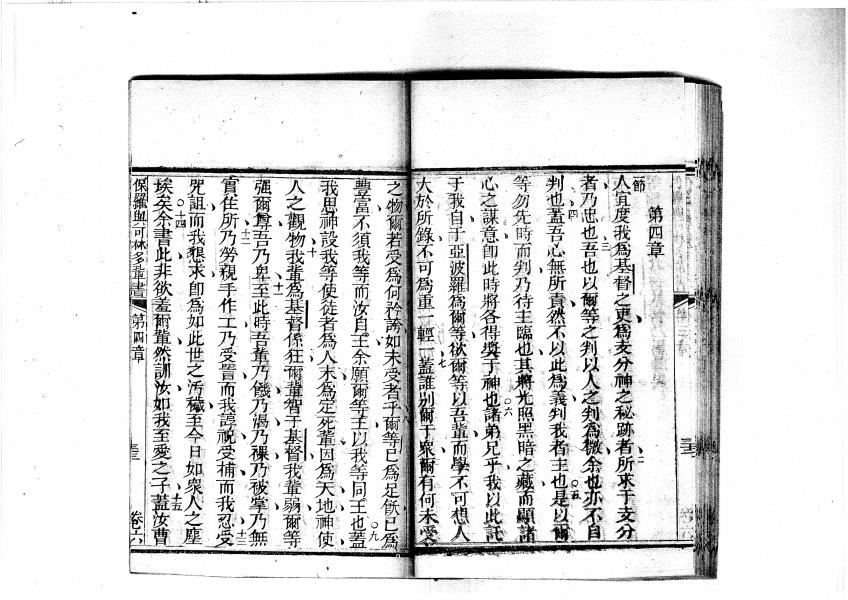 第四章
一節人宜度我為基督之吏為支分神之秘跡者所求于支分
者乃忠也吾也以爾等之判以人之判為微余也亦不自
判也蓋吾心無所責然不以此為義判我者主也是以爾
等勿先時而判乃待主臨也其將光照黑暗之藏而顯諸
心之謀意即此時將各得獎于神也諸弟兄乎我以此託
于我自于亞波羅為爾等欲爾等以吾輩而學不可想人
大於所錄不可為重一輕一蓋誰別爾于衆爾有何未受
之物爾若受為何矜誇如未受者乎爾等已為足飫已為
豐富不須我等而汝自王余願爾等王以我等同王也蓋
我思神設我等使徒者為人末為定死輩因為天地神使
人之觀物我輩為基督係狂爾輩智于基督我輩弱爾等
强爾尊吾乃卑至此時吾輩乃饑乃渴乃裸乃被掌乃無
實在所乃勞親手作工乃受詈而我諄祝受捕而我忍受
咒詛而我懇求即為如此世之汚穢至今日如衆人之塵
埃矣余書此非欲羞爾輩然訓汝如我至愛之子蓋汝曹
保羅與可林多輩書 第四章 卷六